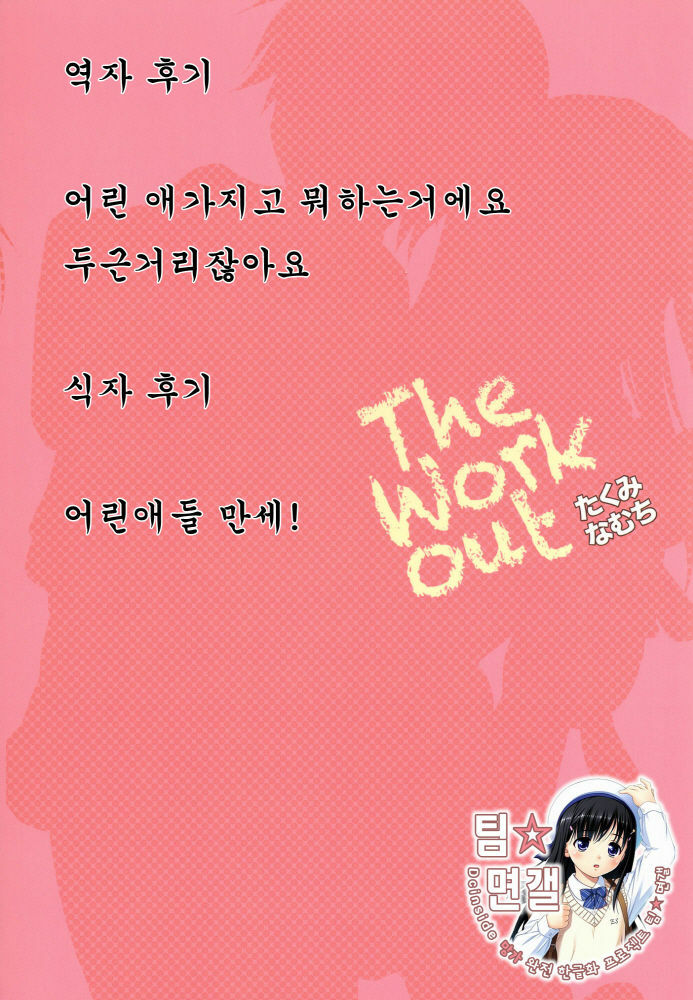 역자 후기
어린 애가지고 뭐하는거에요
두근거리잖아요
식자 후기
어린애들 만세!
The
Work
out
たくみ
なむち
팀☆
면갤
Dcinside 망가 완전 한글화 프로젝트 팀★면갤